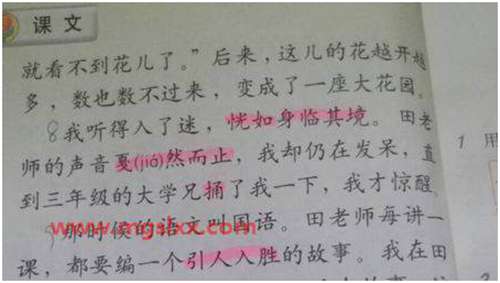 课文
就看不到花儿了。”后来，这儿的花越开越
多，数也数不过来，变成了一座大花园。
8我听得入了迷，恍如身临其境。田老
师的声音戛(jiá)然而止，我却仍在发呆，直
到三年级的大学兄捅了我一下，我才惊醒。
9那时候的语文叫国语。田老师每讲一
课，都要编一个引人入胜的故事。我在田
1 用
2